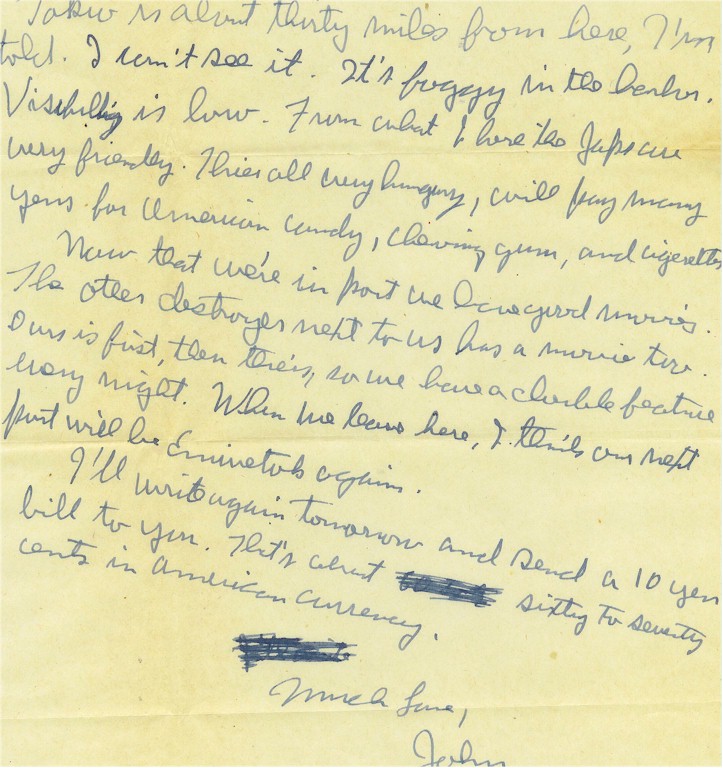 Tokio is about thirty miles from here, I'm
told. I can't see it. It's foggy in the harbor.
Visibility is low. From what I here the Japs are
very friendly. Thier all very hungry, will pay many
yens for American candy, chewing gum, and cigerettes
Now that we're in port we have good movies.
The other destroyer next to us has a movie two.
Ours is first, then there's, so we have a double feature
every night. When we leave here, I think our next
port will be Eniwetok again.
I'll write again tomorrow and send a 10 yen
bill to you. That's about sixty to seventy
cents in American currency.
Much Love,
John